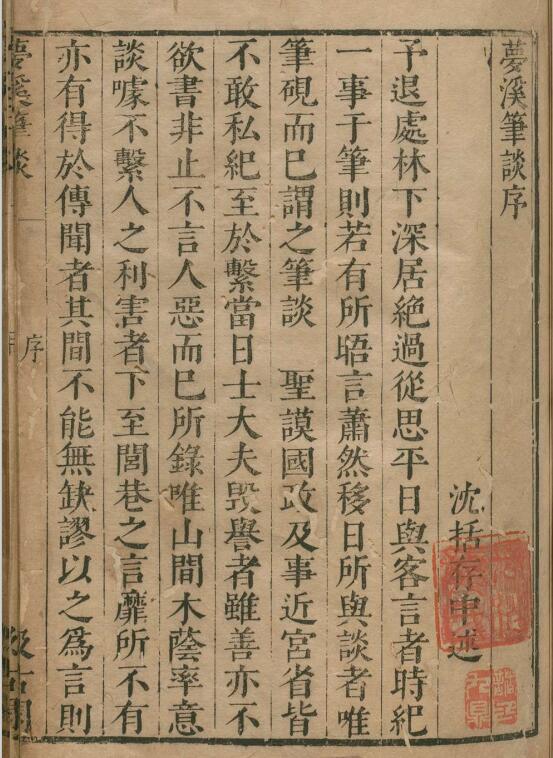 夢溪筆談序
沈括存中述
予退處林下深居絕過從思平日與客言者時紀
一事于筆則若有所晤言蕭然移日所與談者唯
筆硯而已謂之筆談　聖謨國政及事近宮省皆
不敢私紀至於繫當日士大夫毀譽者雖善亦不
欲書非止不言人惡而已所錄唯山間木蔭率意
談噱不繫人之利害者下至閭巷之言靡所不有
亦有得於傳聞者其間不能無缺謬以之爲言則
夢溪筆談
序
汲古閣